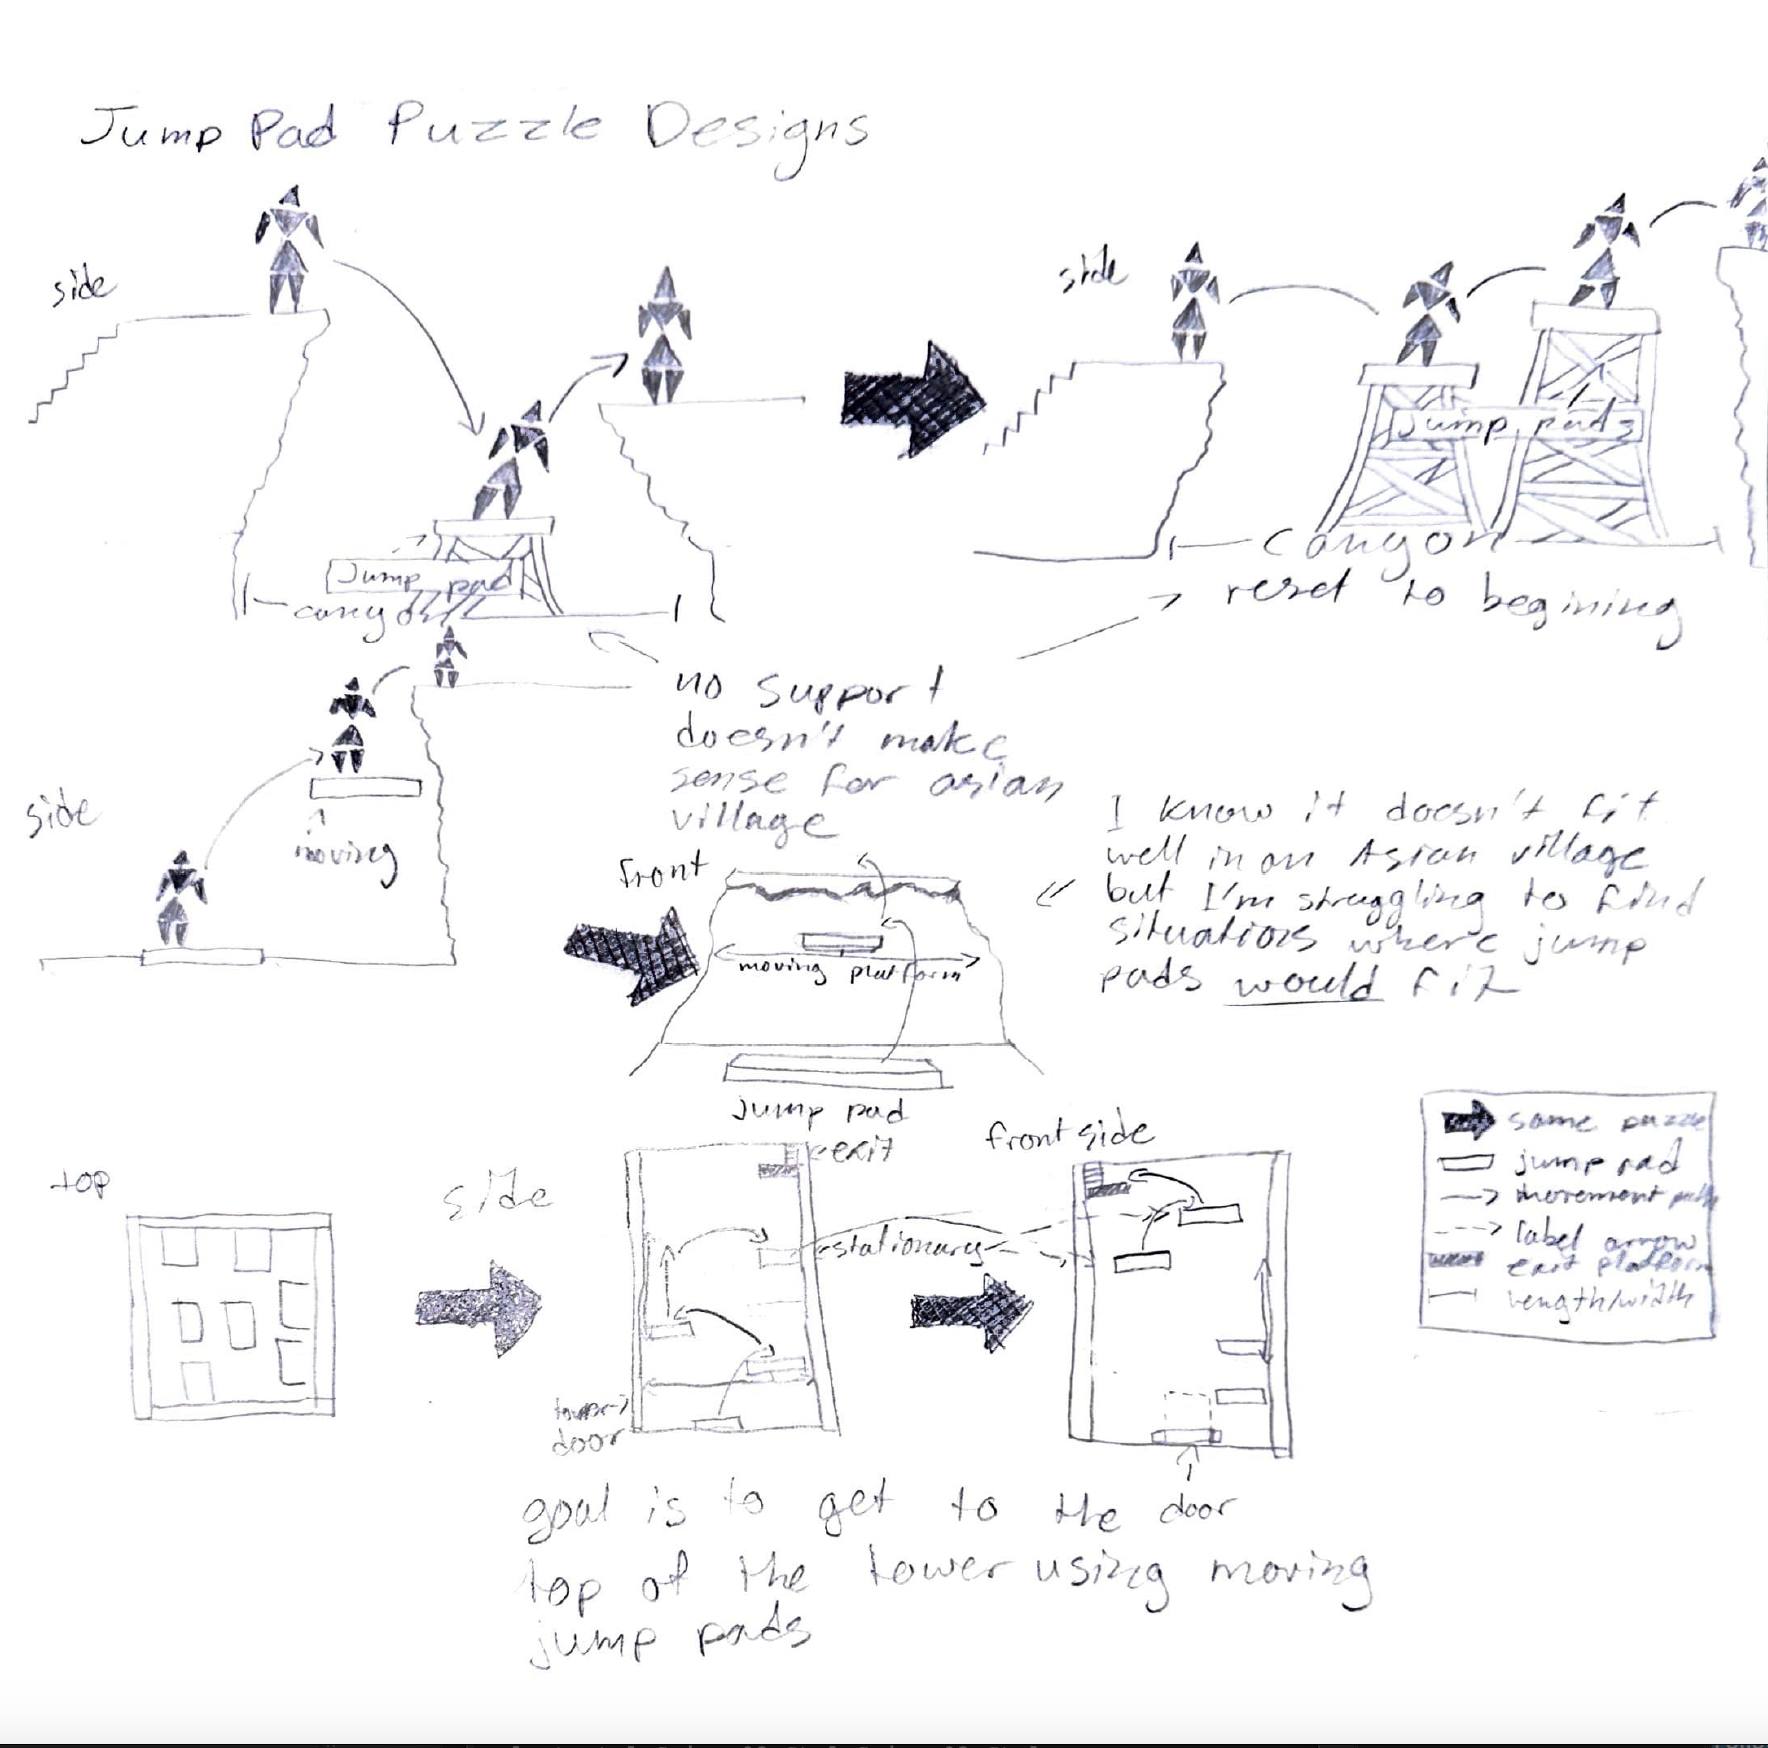 Jump Pad Puzzle Designs
side
side
Jump pad
canyon
Jump pads
canyon
reset to begining
no support
doesn't make
sense for asian
village
side
moving
I know it doesn't fit
well in an Asian village
but I'm struggling to find
situations where jump
pads would fit
front
moving platform
Jump pad
exit
front side
top
side
stationary
tower
door
same puzzle
jump pad
movement path
label arrow
exit platform
length/width
door
goal is to get to the
top of the tower using moving
jump pads